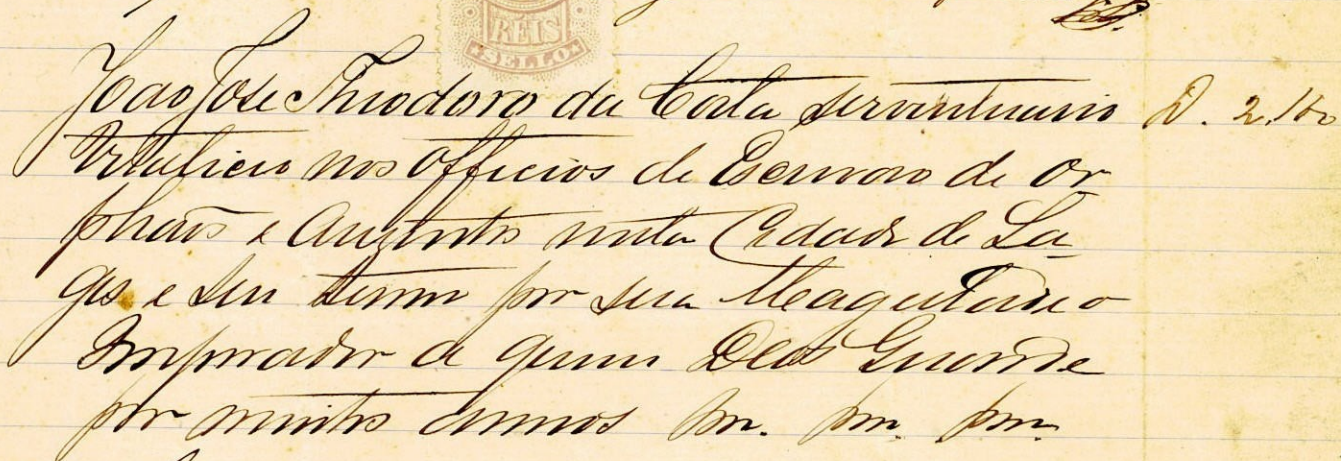 REIS
SELLO
João José Theodoro da Costa serventuario D. 2.100
Vitalicio nos officios de Escrivão de or-
phãos e Auzentes nesta Cidade de La-
ges e seu termo por sua Magestade o
Imperador a quem Deos Guarde
por muitos annos &ª